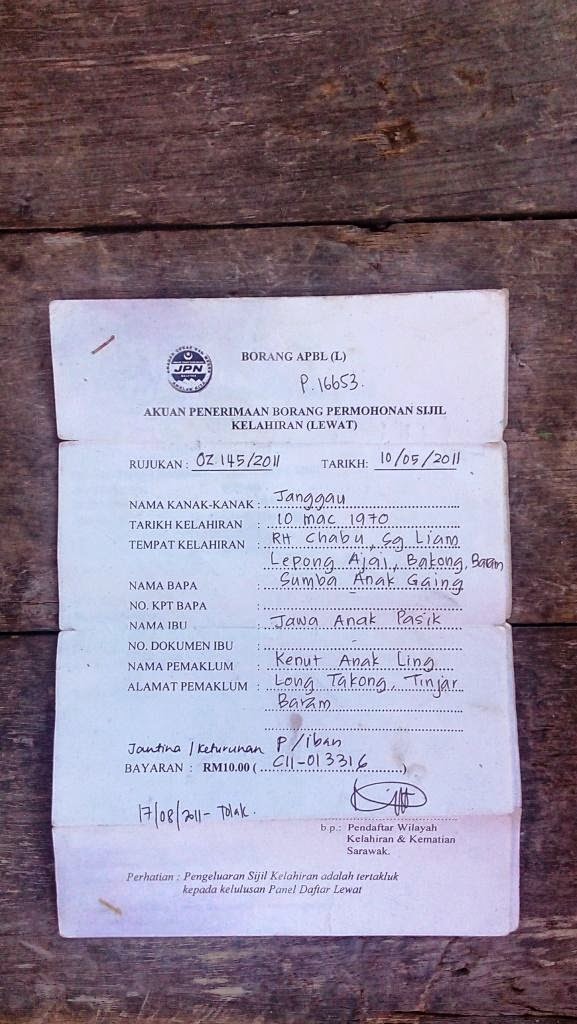 JPN
BORANG APBL (L)
P.16653.
AKUAN PENERIMAAN BORANG PERMOHONAN SIJIL
KELAHIRAN (LEWAT)
RUJUKAN : OZ 145/2011 TARIKH: 10/05/2011
NAMA KANAK-KANAK : Janggau
TARIKH KELAHIRAN : 10 mac 1970
TEMPAT KELAHIRAN : RH Chabu, Sg Liam
Lepong Ajai, Bakong, Baram
NAMA BAPA : Sumba Anak Gaing
NO. KPT BAPA :
NAMA IBU : Jawa Anak Pasik
NO. DOKUMEN IBU : -
NAMA PEMAKLUM : Kenut Anak Ling
ALAMAT PEMAKLUM : Long Takong, Tinjar
Baram
Jantina / Keturunan P / iban
BAYARAN : RM10.00 ( C11-013316 )
17/08/2011 - Tolak.
b.p.: Pendaftar Wilayah
Kelahiran & Kematian
Sarawak.
Perhatian : Pengeluaran Sijil Kelahiran adalah tertakluk
kepada kelulusan Panel Daftar Lewat